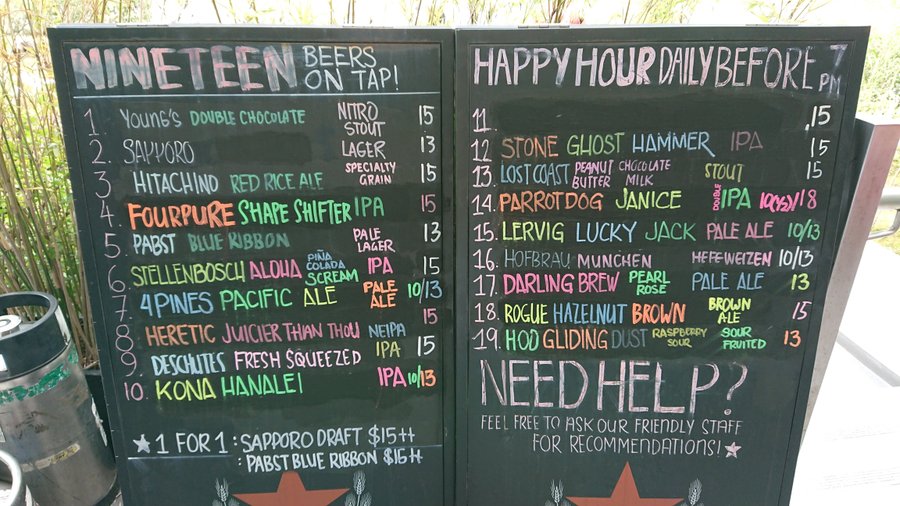 NINETEEN BEERS ON TAP!
1. YOUNG'S DOUBLE CHOCOLATE NITRO STOUT 15
2. SAPPORO LAGER 13
3. HITACHINO RED RICE ALE SPECIALTY GRAIN 15
4. FOURPURE SHAPE SHIFTER IPA 15
5. PABST BLUE RIBBON PALE LAGER 13
6. STELLENBOSCH ALOHA PIÑA COLADA SCREAM IPA 15
7. 4PINES PACIFIC ALE PALE ALE 10/13
8. HERETIC JUICIER THAN THOU NEIPA 15
9. DESCHUTES FRESH SQUEEZED IPA 15
10. KONA HANALEI IPA 10/13
★ 1 FOR 1 : SAPPORO DRAFT $15++
: PABST BLUE RIBBON $15++
HAPPY HOUR DAILY BEFORE 7 PM
11. 15
12. STONE GHOST HAMMER IPA 15
13. LOST COAST PEANUT BUTTER CHOCOLATE MILK STOUT 15
14. PARROTDOG JANICE DOUBLE IPA 10(1/2)/18
15. LERVIG LUCKY JACK PALE ALE 10/13
16. HOFBRAU MUNCHEN HEFEWEIZEN 10/13
17. DARLING BREW PEARL ROSE PALE ALE 13
18. ROGUE HAZELNUT BROWN BROWN ALE 15
19. HOD GLIDING DUST RASPBERRY SOUR SOUR FRUITED 13
NEED HELP?
FEEL FREE TO ASK OUR FRIENDLY STAFF
FOR RECOMMENDATIONS! ★